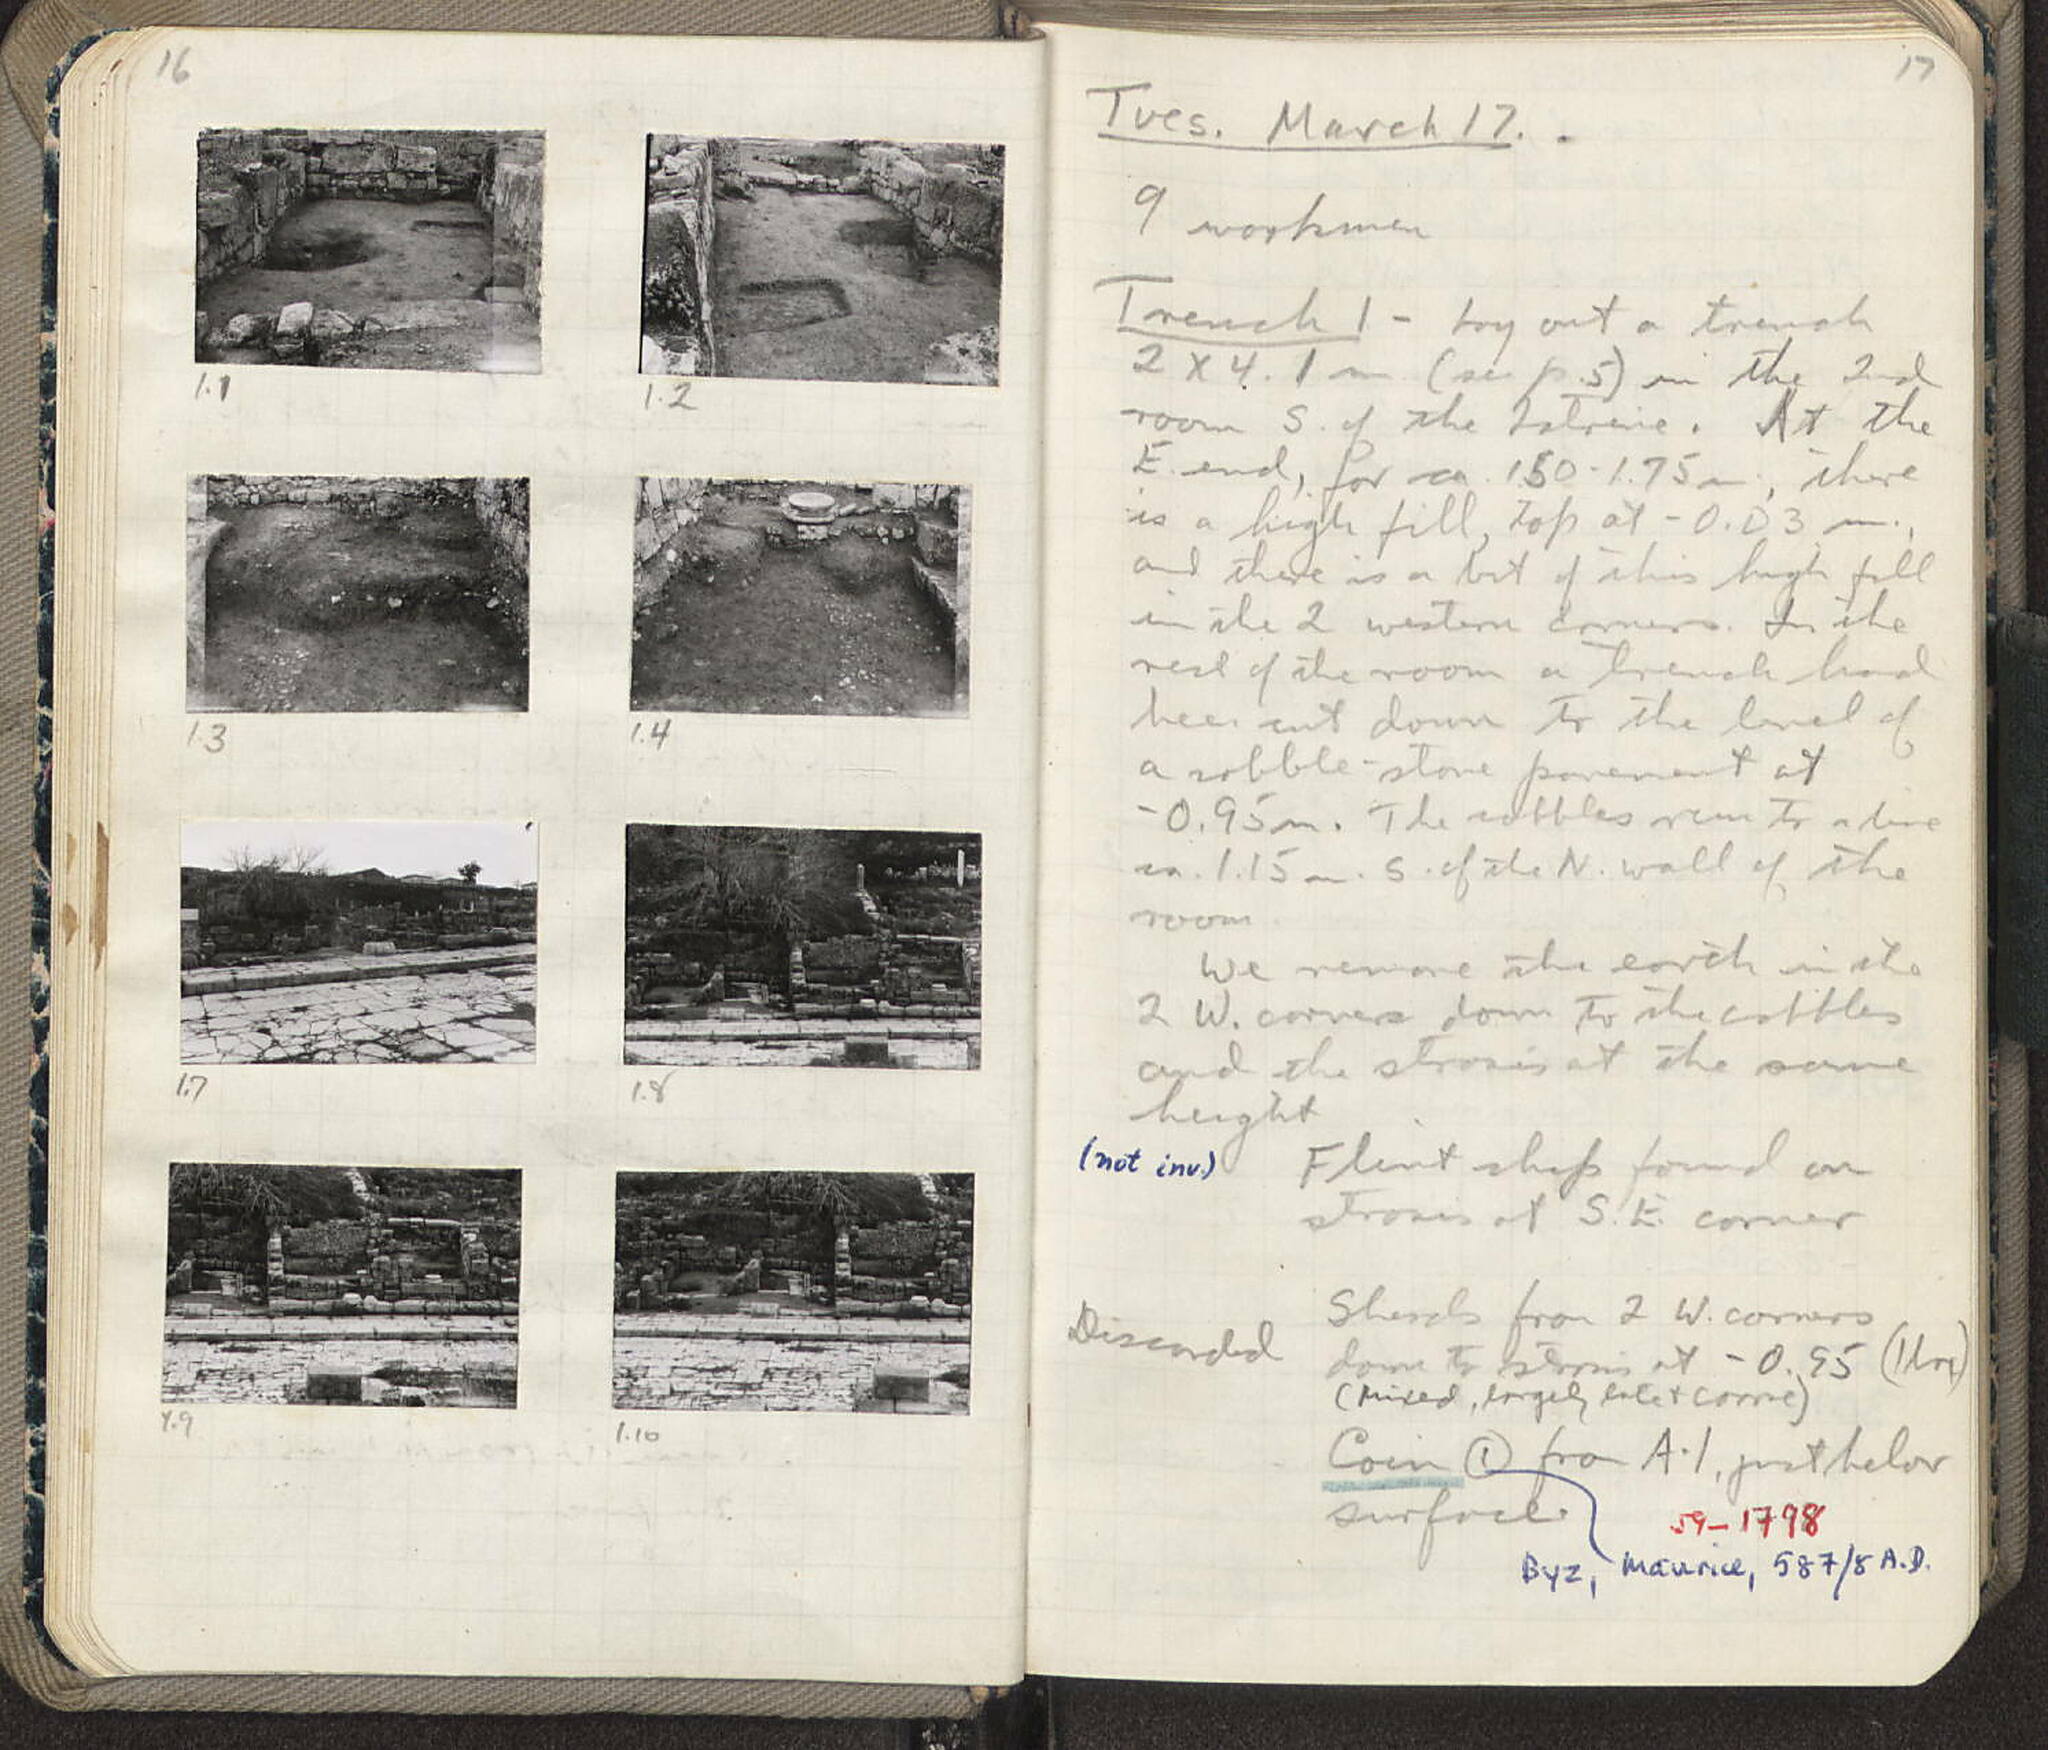 16
1.1
1.2
1.3
1.4
1.7
1.8
1.9
1.10
17
Tues. March 17.
9 workmen
Trench 1 - Lay out a trench
2 x 4.1 m (see p.5) in the 2nd
room S. of the Latrine. At the
E. end, for ca. 1.50-1.75 m., there
is a high fill, top at -0.03 m.,
and there is a bit of this high fill
in the 2 western corners. In the
rest of the room a trench had
been cut down to the level of
a cobble-stone pavement at
-0.95 m. The cobbles run to a line
ca. 1.15 m. S. of the N. wall of the
room.
We remove the earth in the
2 W. corners down to the cobbles
and the strosis at the same
height
(not inv.) Flint chip found on
strosis at S.E. corner
Discarded Sherds from 2 W. corners
down to strosis at -0.95
(Mixed, largely late + coarse)
Coin ① from A.1, just below
surface.
59-1798
Byz, Maurice, 587/8 A.D.